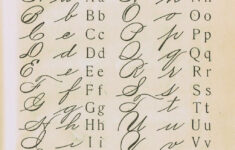 A a Aa N n Nn
B b Bb O o Oo
C c Cc P p Pp
D d Dd Q q Qq
E e Ee R r Rr
F f Ff S s Ss
G g Gg T t Tt
H h Hh U u Uu
I i Ii V v Vv